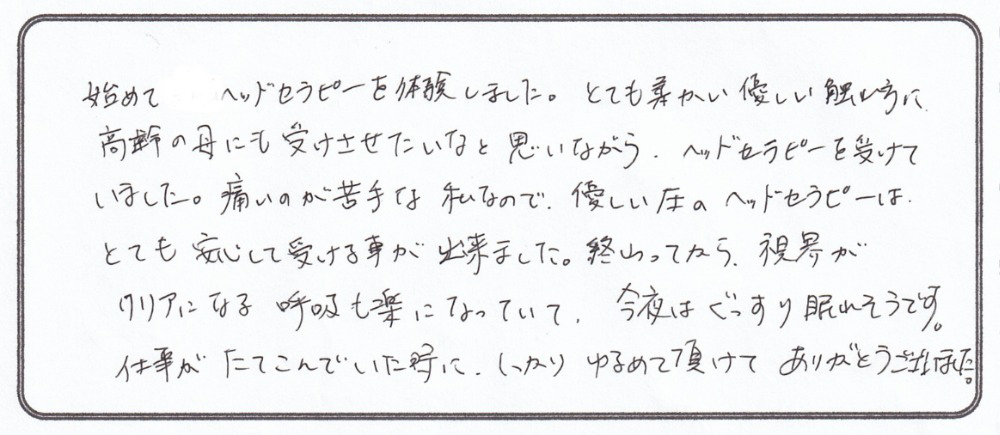 始めて ヘッドセラピーを体験しました。とても柔かい優しい触れ方に
高齢の母にも受けさせたいなと思いながら、ヘッドセラピーを受けて
いました。痛いのが苦手な私なので、優しい圧のヘッドセラピーは、
とても安心して受ける事が出来ました。終わってから、視界が
クリアになる 呼吸も楽になっていて、今夜はぐっすり眠れそうです。
仕事がたてこんでいた時に、しっかりゆるめて頂けてありがとうございました。